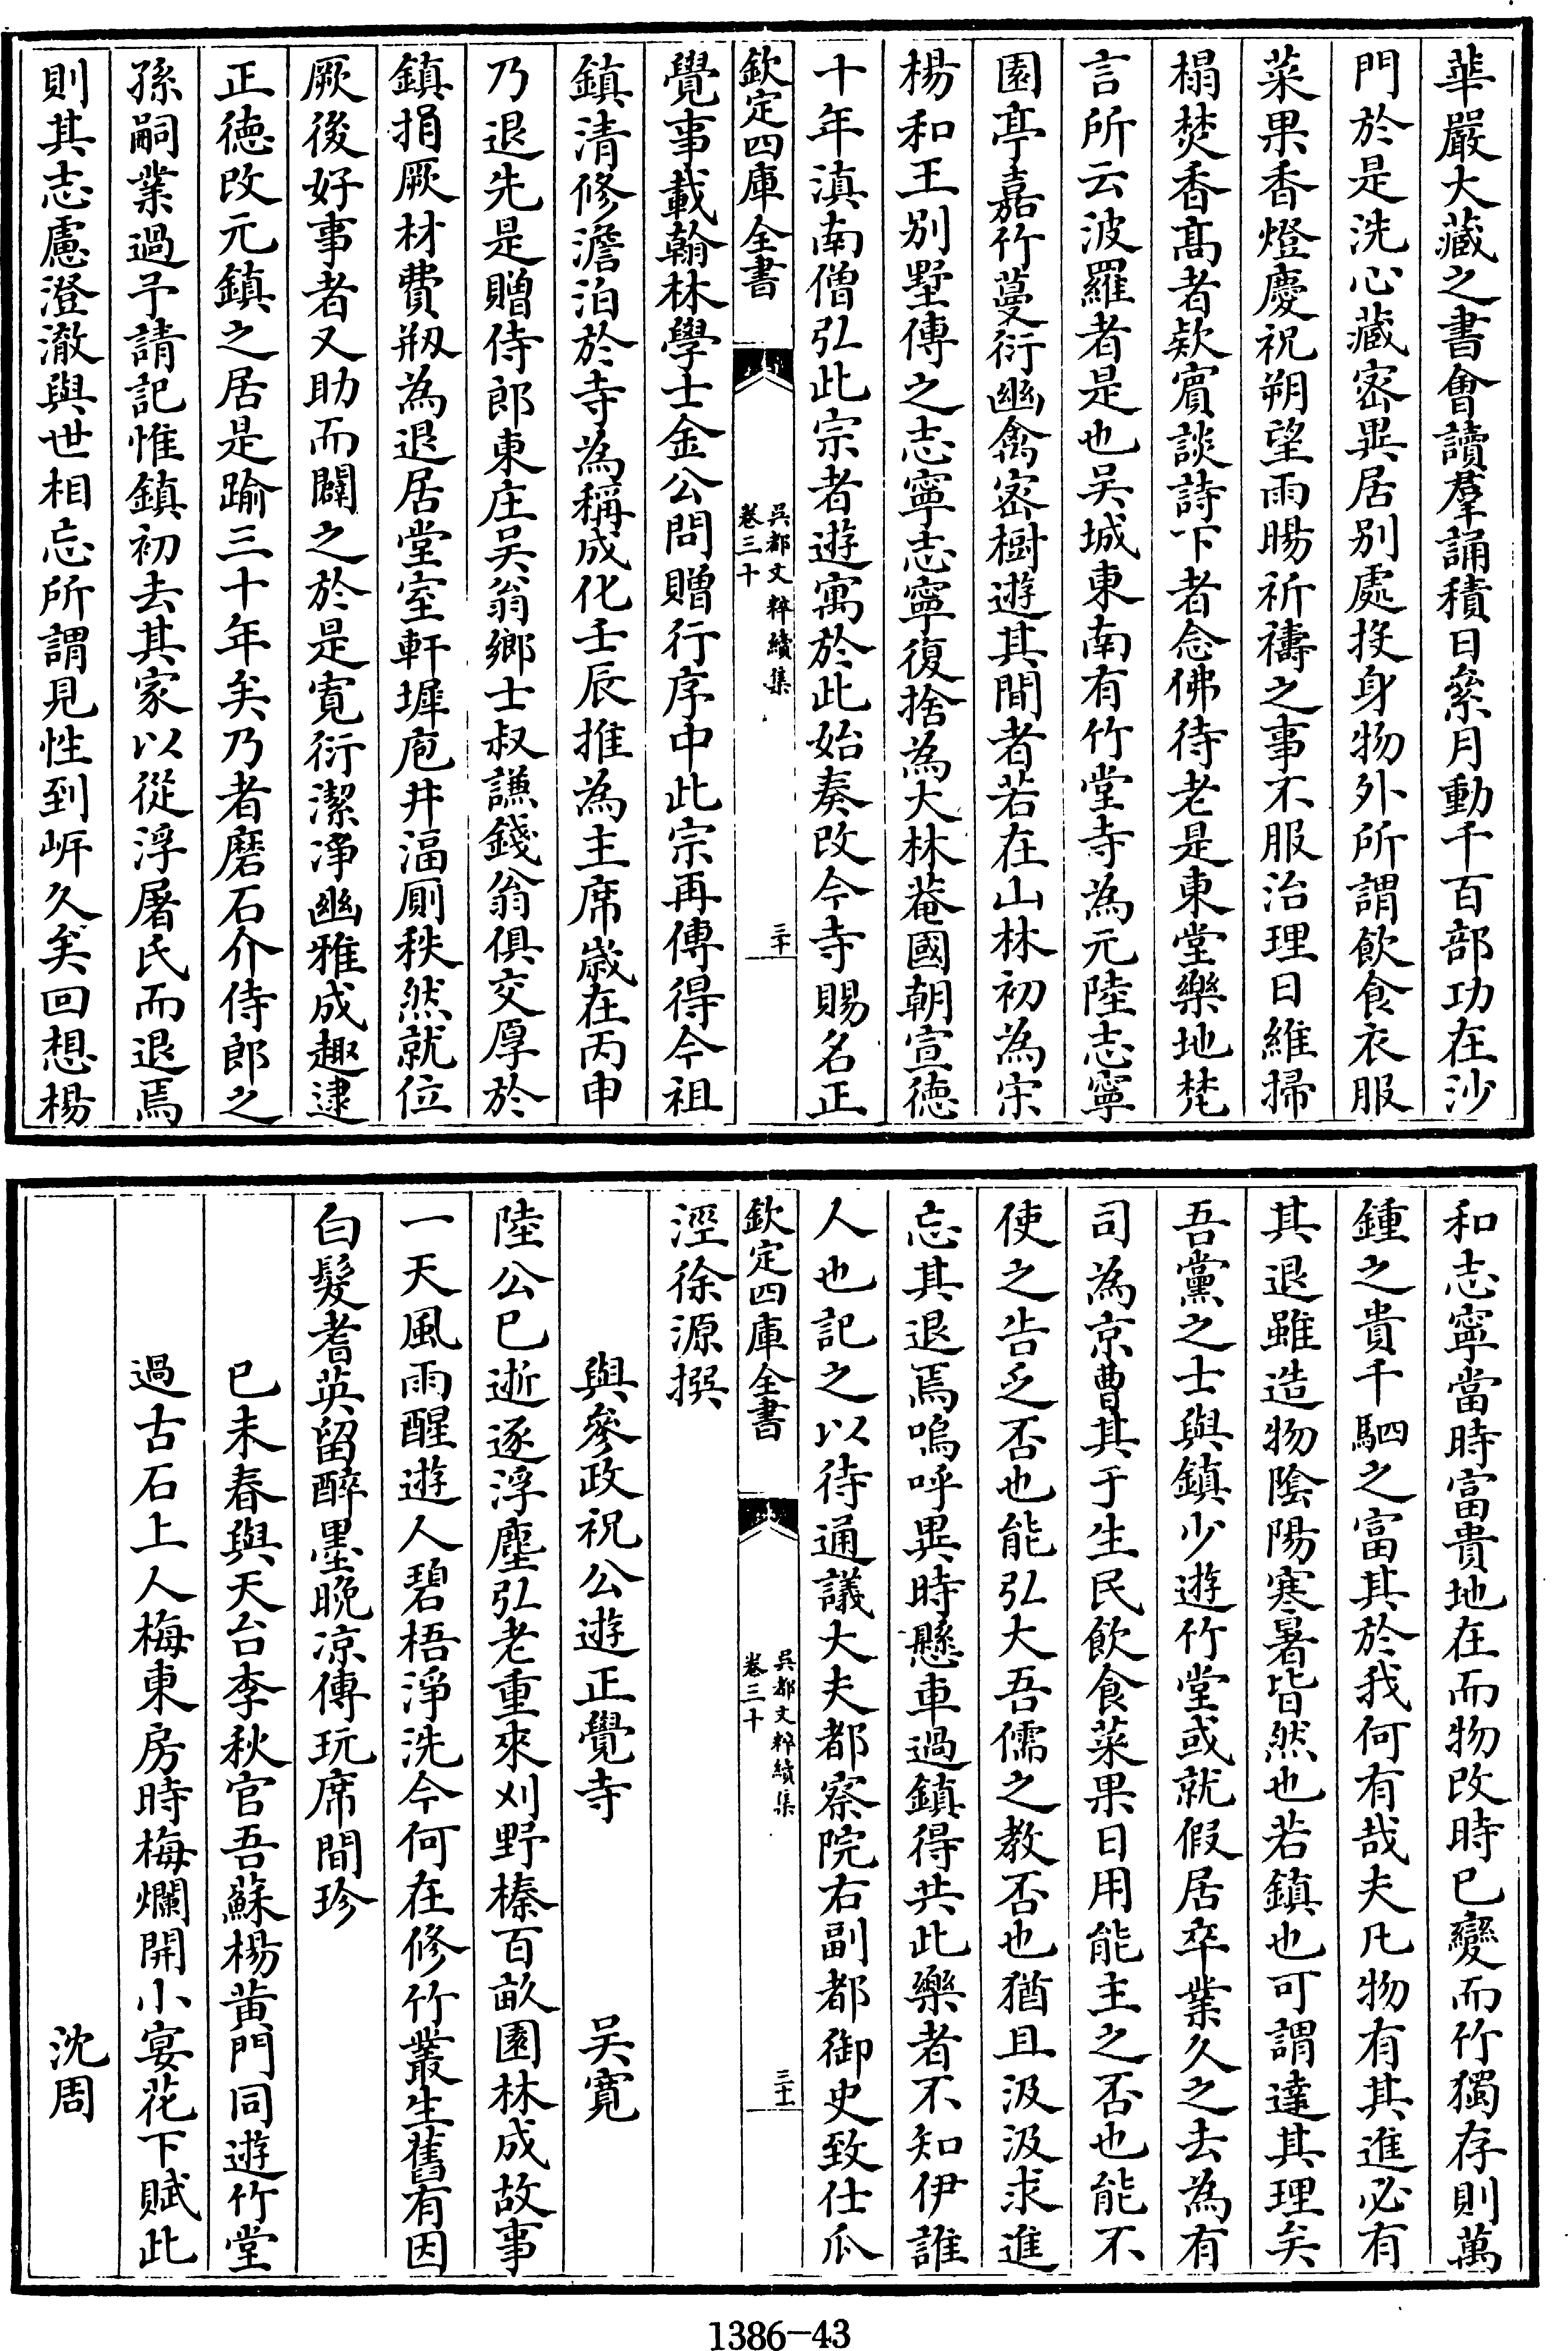 華嚴大藏之書會讀羣誦積日絫月動千百部功在沙
門於是洗心藏密異居别處投身物外所謂飲食衣服
菜果香燈慶祝朔望雨暘祈禱之事不服治理日維掃
榻焚香髙者欵賓談詩下者念佛待老是東堂樂地梵
言所云波羅者是也吴城東南有竹堂寺為元陸志寧
園亭嘉竹蔓衍幽禽密樹遊其間者若在山林初為宋
楊和王别墅傳之志寧志寧復捨為大林菴國朝宣徳
十年滇南僧弘此宗者遊寓於此始奏改今寺賜名正
欽定四庫全書
吳都文粹續集
卷三十
三十
覺事載翰林學士金公問贈行序中此宗再傳得今祖
鎮清修澹泊於寺為稱成化壬辰推為主席嵗在丙申
乃退先是贈侍郎東庄吴翁鄉士叔謙錢翁俱交厚於
鎮捐厥材費剏為退居堂室軒墀庖井湢厠秩然就位
厥後好事者又助而闢之於是寛衍潔浄幽雅成趣逮
正徳改元鎮之居是踰三十年矣乃者磨石介侍郎之
孫嗣業過予請記惟鎮初去其家以從浮屠氏而退焉
則其志慮澄澈與世相忘所謂見性到岍久矣回想楊
和志寧當時富貴地在而物改時已變而竹獨存則萬
鍾之貴千駟之富其於我何有哉夫凡物有其進必有
其退雖造物陰陽寒暑皆然也若鎮也可謂達其理矣
吾黨之士與鎮少遊竹堂或就假居卒業久之去為有
司為京曹其于生民飲食菜果日用能主之否也能不
使之告乏否也能弘大吾儒之教否也猶且汲汲求進
忘其退焉嗚呼異時懸車過鎮得共此樂者不知伊誰
人也記之以待通議大夫都察院右副都御史致仕瓜
欽定四庫全書
吳都文粹續集
卷三十
三十一
涇徐源撰
與參政祝公遊正覺寺 吴寛
陸公已逝逐浮塵弘老重來刈野榛百畝園林成故事
一天風雨醒遊人碧梧淨洗今何在修竹叢生舊有因
白髮耆英留醉墨晩凉傳玩席間珍
已未春與天台李秋官吾蘇楊黄門同遊竹堂
過古石上人梅東房時梅爛開小宴花下賦此
沈周
1386-43